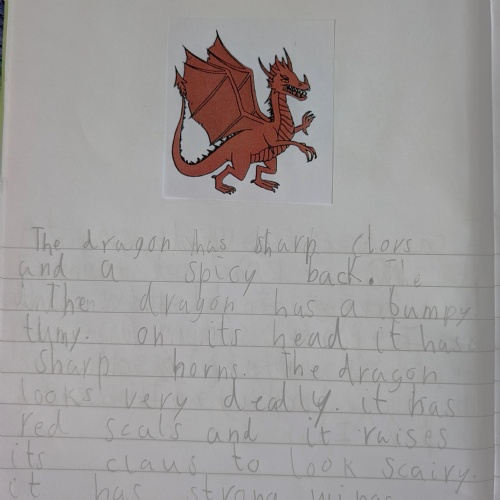 The dragon has sharp clors
and a spicy back. The
Then dragon has a bumpy
tumy. on its head it has
sharp horns. The dragon
looks very deadly. it has
red scals and it raises
its claus to look scairy.
it has strong wings